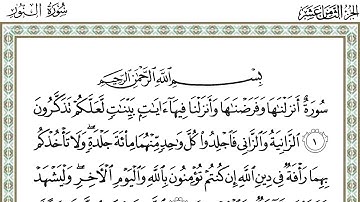 الجزء الثامن عشر سورة النور
بِسْمِ اللَّهِ الرَّحْمَٰنِ الرَّحِيمِ
سُورَةٌ أَنزَلْنَٰهَا وَفَرَضْنَٰهَا وَأَنزَلْنَا فِيهَآ ءَايَٰتٍۭ بَيِّنَٰتٍ لَّعَلَّكُمْ تَذَكَّرُونَ
١ الزَّانِيَةُ وَالزَّانِي فَاجْلِدُوا۟ كُلَّ وَٰحِدٍ مِّنْهُمَا مِا۟ئَةَ جَلْدَةٍ ۖ وَلَا تَأْخُذْكُم
بِهِمَا رَأْفَةٌ فِي دِينِ اللَّهِ إِن كُنتُمْ تُؤْمِنُونَ بِاللَّهِ وَالْيَوْمِ الْءَاخِرِ ۖ وَلْيَشْهَدْ